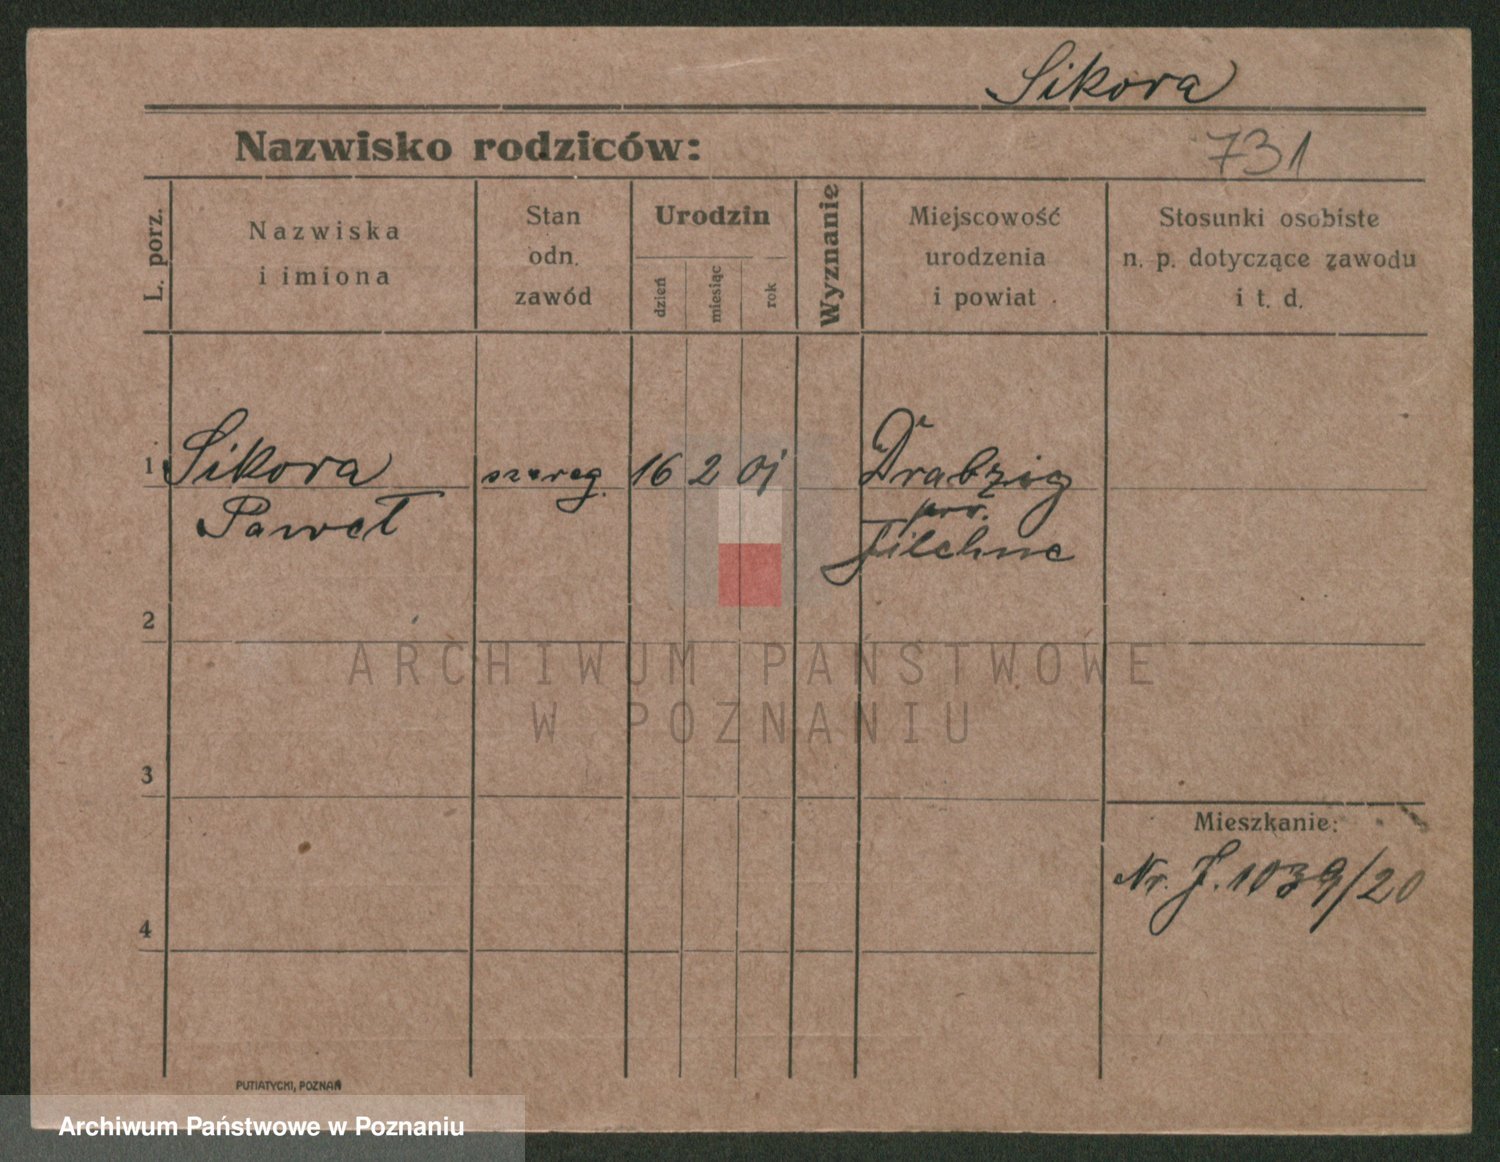 Sikora
Nazwisko rodziców:
731
L. porz.
Nazwiska
i imiona
Stan
odn.
zawód
Urodzin
dzień
miesiąc
rok
Wyznanie
Miejscowość
urodzenia
i powiat
Stosunki osobiste
n. p. dotyczące zawodu
i t. d.
1 Sikora szereg. 16 2 01 Drabzig
Paweł pow.
Filehne
2
ARCHIWUM PAŃSTWOWE
W POZNANIU
3
Mieszkanie:
Nr. J. 1039/20
4
PUTIATYCKI, POZNAŃ
Archiwum Państwowe w Poznaniu